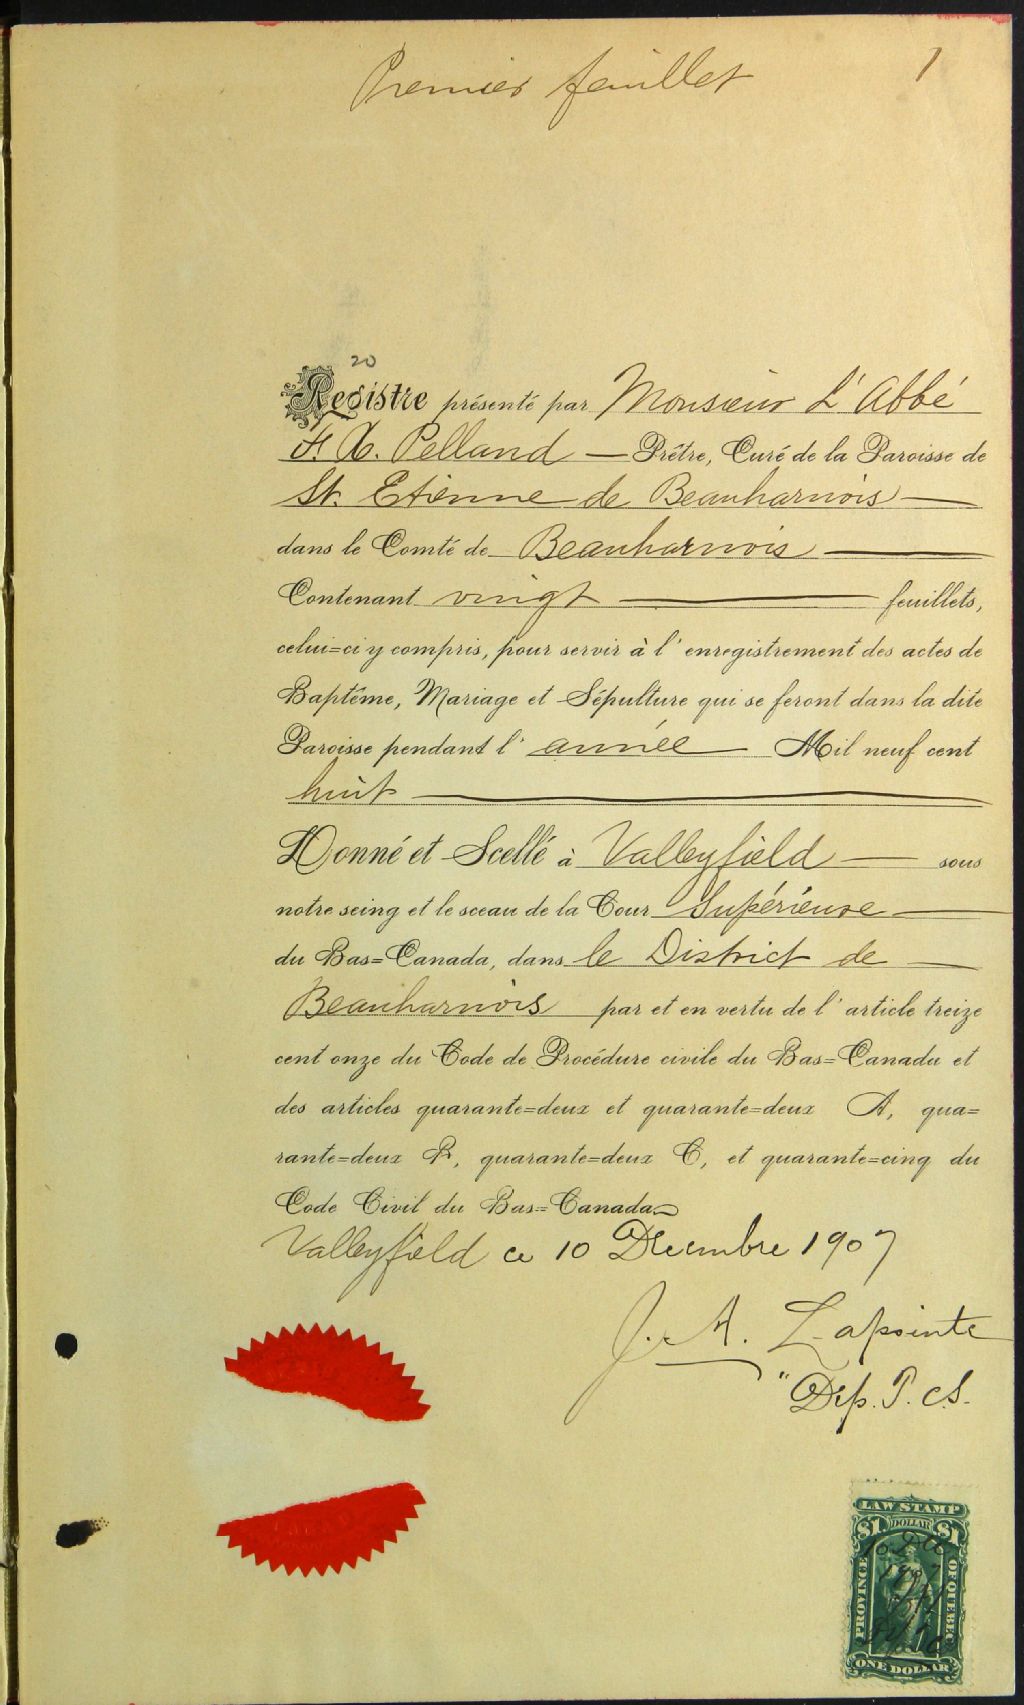 Premier feuillet
1
20
Registre présenté par Monsieur L'Abbé
F. X. Pelland — Prêtre, Curé de la Paroisse de
St. Etienne de Beauharnois —
dans le Comté de Beauharnois —
Contenant vingt — feuillets,
celui=ci y compris, pour servir à l'enregistrement des actes de
Baptême, Mariage et Sépulture qui se feront dans la dite
Paroisse pendant l'année Mil neuf cent
huit —
Donné et Scellé à Valleyfield — sous
notre seing et le sceau de la Cour Supérieure —
du Bas=Canada, dans le District de —
Beauharnois par et en vertu de l'article treize
cent onze du Code de Procédure civile du Bas=Canada et
des articles quarante=deux et quarante=deux A, qua=
rante=deux B, quarante=deux C, et quarante=cinq du
Code Civil du Bas=Canada
Valleyfield ce 10 Décembre 1907
J. A. Lapointe
Dép. P. C.S.
LAW STAMP
$1 DOLLAR $1
PROVINCE
OF QUEBEC
10 Dec
1907
ONE DOLLAR